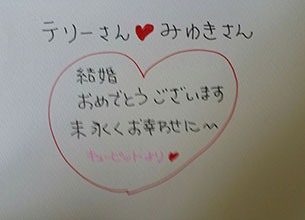 テリーさん♥みゆきさん
結婚
おめでとうございます
末永くお幸わせに〜
キューピットより♥